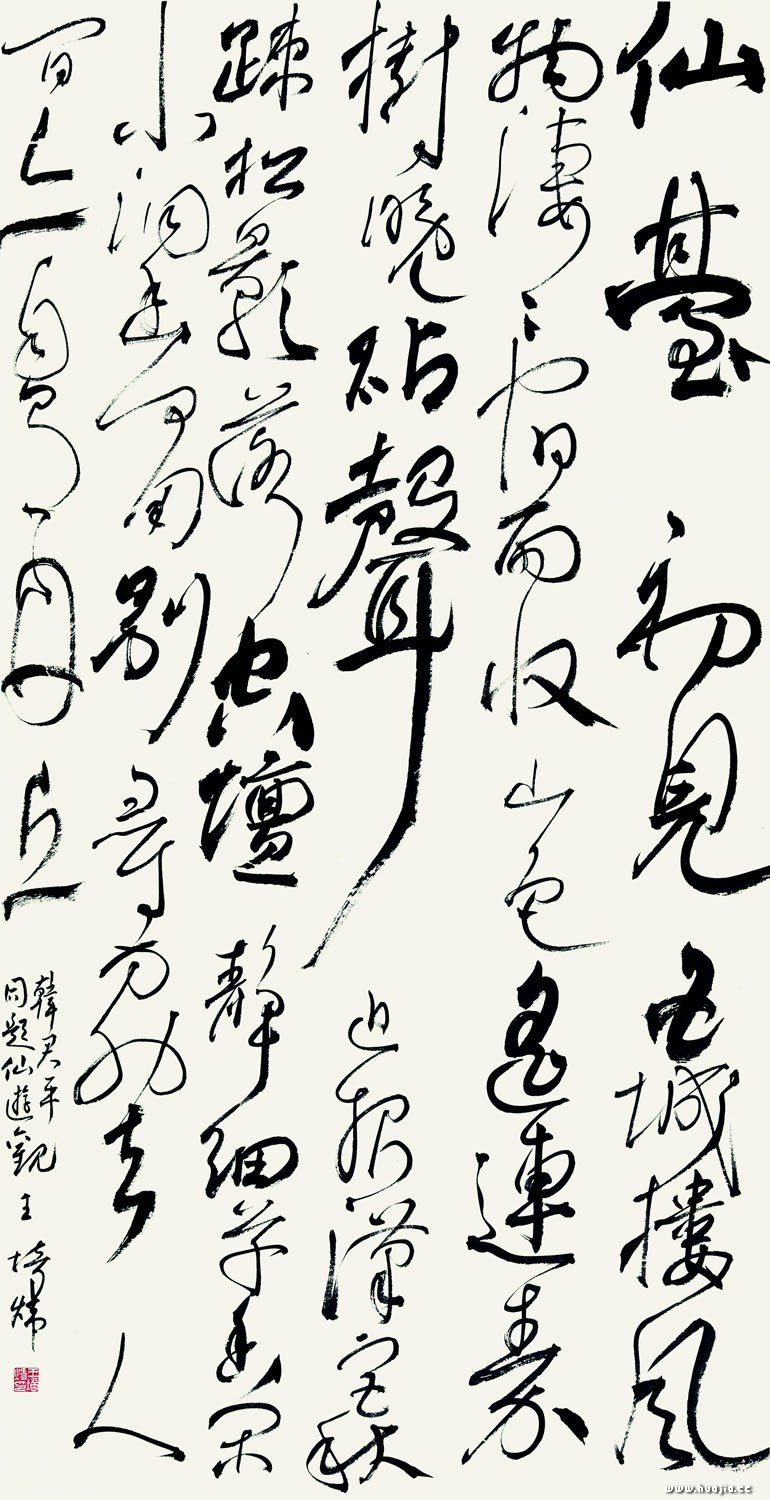 仙臺初見五城樓風
物淒々宿雨收山色遙連秦
樹晚砧聲近報漢宮秋
疎松影落空壇靜細草香閑
小洞幽何用別尋方外去人
間亦自有丹丘
韓君平
同題仙遊觀 王培煒